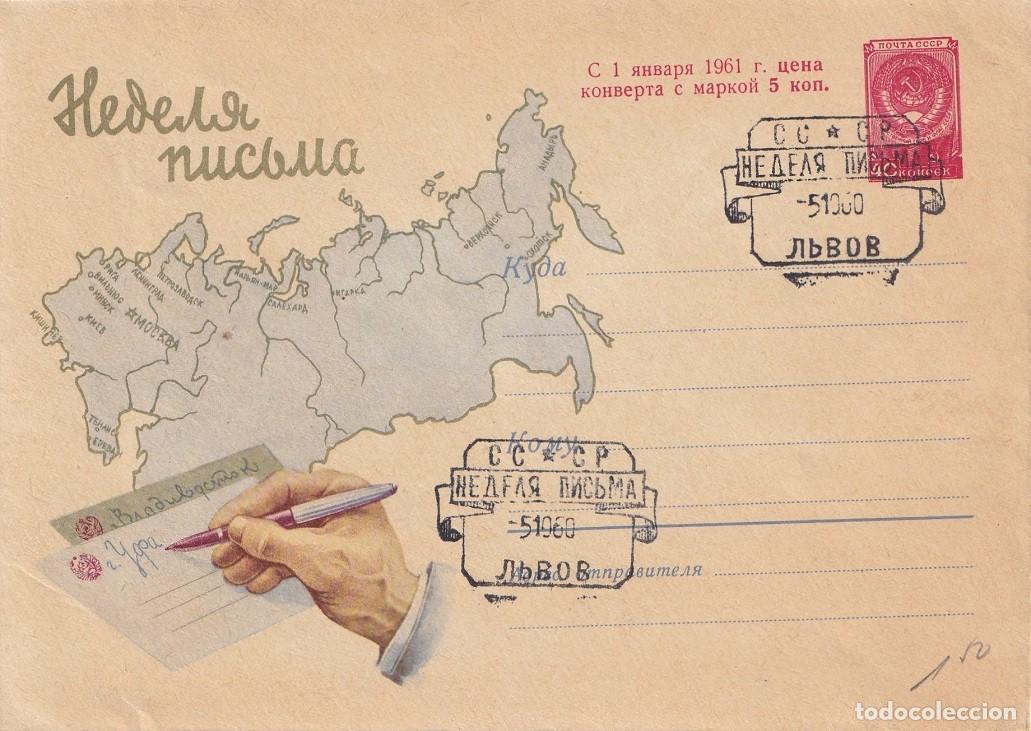 Неделя
письма
С 1 января 1961 г. цена
конверта с маркой 5 коп.
ПОЧТА СССР
40 КОПЕЕК
СС ★ СР
НЕДЕЛЯ ПИСЬМА
-51060
ЛЬВОВ
АНАДЫРЬ
ВЕРХОЯНСК
ОХОТСК
РИГА
ВИЛЬНЮС
МИНСК
ЛЕНИНГРАД
ПЕТРОЗАВОДСК
НАРЬЯН-МАР
САЛЕХАРД
ИГАРКА
КИШИНЕВ
КИЕВ
МОСКВА
Куда
Кому
СС ★ СР
НЕДЕЛЯ ПИСЬМА
-51060
ЛЬВОВ
отправителя
г. Владивосток
г. Уфа
1 50
todocoleccion